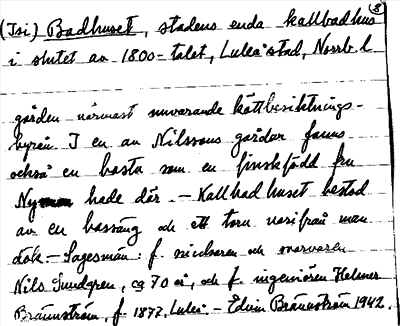 8
(Isi) Badhuset, stadens enda kallbadhus
i slutet av 1800-talet, Luleå stad, Norrb. l
gården närmast nuvarande köttbesiktnings-
byrån. I en av Nilssons gårdar fanns
också en bastu som en finskfödd fru
Ny hade där. - Kallbadhuset bestod
av en bassäng och ett torn varifrån man
dök - Sagesmän: f. och svarvaren
Nils Sundgren, ca 70 år, och f. ingeniören Helmer
Brännström, f. 1877, Luleå. - Edvin Brännström 1942.